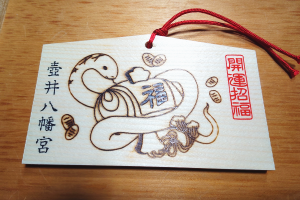 開運招福
福
壺井八幡宮